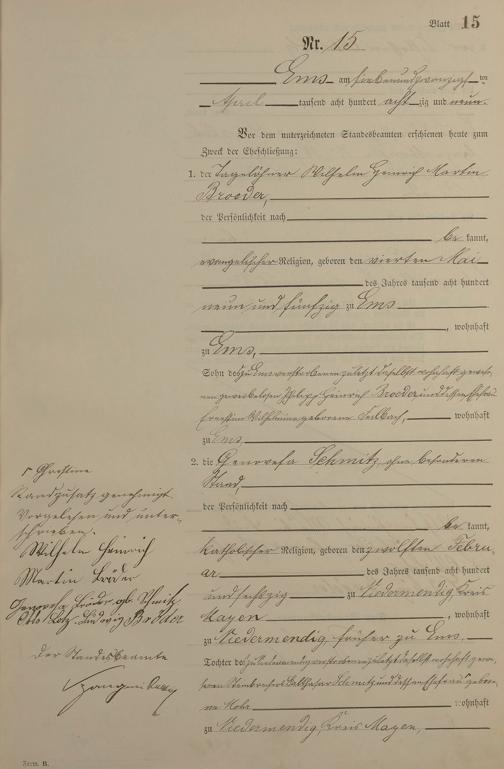 Blatt 15
Nr. 15
Ems am siebenundzwanzigsten
April tausend acht hundert achtzig und neun.
Vor dem unterzeichneten Standesbeamten erschienen heute zum
Zweck der Eheschließung:
1. der Tagelöhner Wilhelm Heinrich Martin
Broeder,
der Persönlichkeit nach
be kannt,
evangelischer Religion, geboren den vierten Mai
des Jahres tausend acht hundert
neun und fünfzig zu Ems
, wohnhaft
zu Ems,
Sohn des zu Ems verstorbenen zuletzt daselbst wohnhaft gewese-
nen Philipp Heinrich Broeder und dessen Ehefrau
Wilhelmine geborene wohnhaft
zu Ems
2. die Genovefa Schmitz, ohne besonderen
Stand,
der Persönlichkeit nach
be kannt,
katholischer Religion, geboren den zwölften Febru-
ar des Jahres tausend acht hundert
und sechszig zu Niedermendig Kreis
Mayen , wohnhaft
zu Niedermendig, früher zu Ems.
Tochter des zu Niedermendig verstorbenen zuletzt daselbst wohnhaft gewe-
senen Steinbrechers Balthasar Schmitz und dessen Ehefrau gebore-
ne wohnhaft
zu Niedermendig, Kreis Mayen,
Randzusatz genehmigt
Vorgelesen und unter-
schrieben.
Wilhelm Heinrich
Martin Bröder
Genovefa Bröder geb. Schmitz
Otto Lotz. Ludwig Bröder
Der Standesbeamte
Form. B.